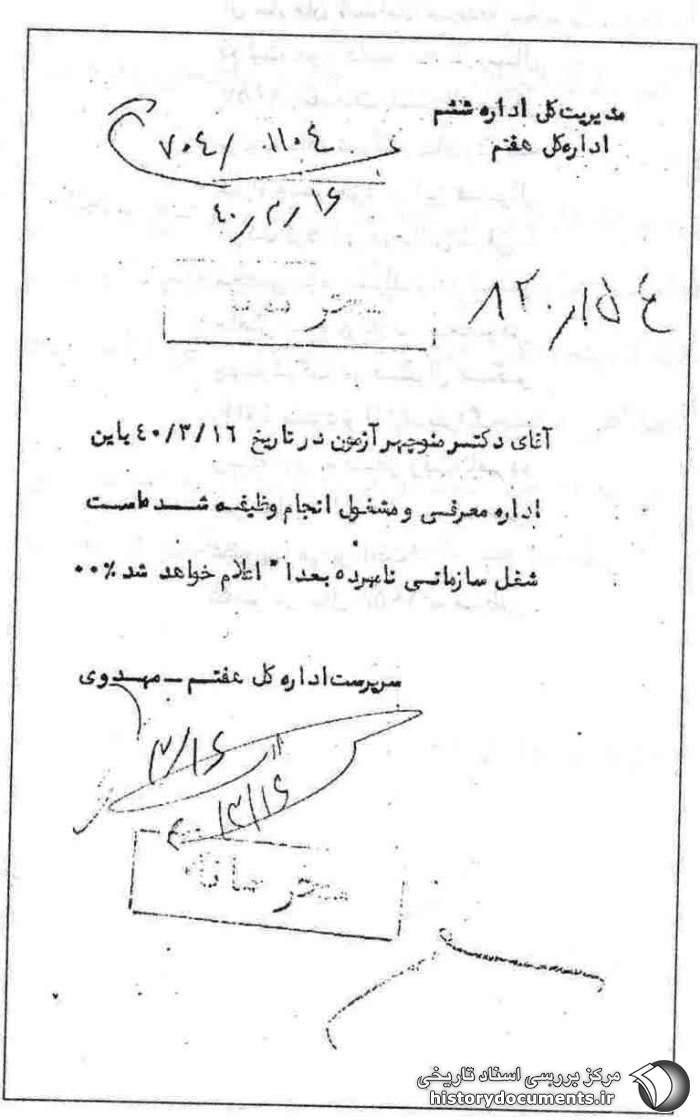 مدیریت کل اداره ششم
اداره کل هفتم
۷۰٤/ ۱۱۰٤
٤۰/۳/۱۶
محرمانه
آقای دکتر منوچهر آزمون در تاریخ ٤۰/۳/۱٦ باین
اداره معرفی و مشغول انجام وظیفه شده است
شغل سازمانی نامبرده بعدا" اعلام خواهد شد٪۰۰
سرپرست اداره کل هفتم – مهدوی
۳/۱۶
۳/۱۶
محرمانه
مرکز بررسی اسناد تاریخی
historydocuments.ir